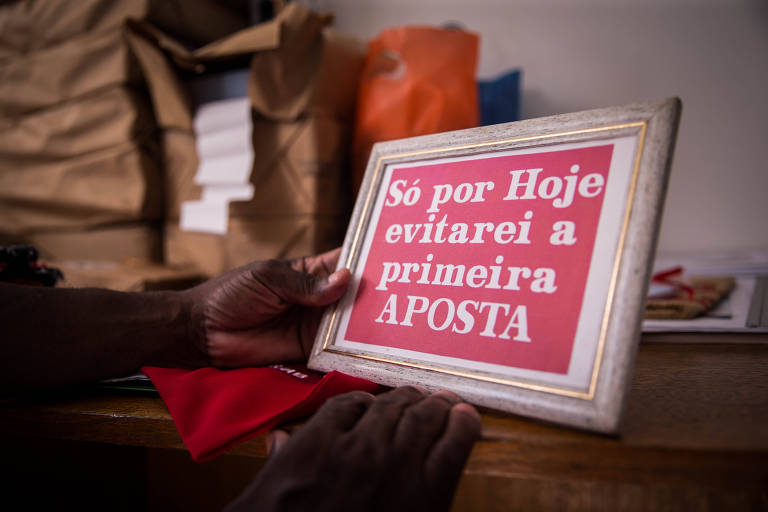 Só por Hoje
evitarei a
primeira
APOSTA